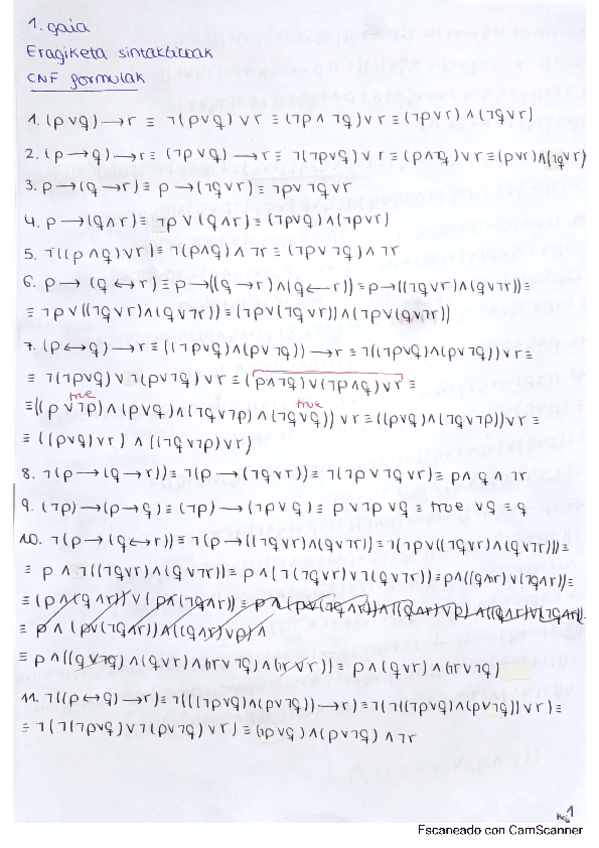 1. gaia
Eragiketa sintaktikoak
CNF formulak
1. (p∨q) → r ≡ ¬(p∨q) ∨ r ≡ (¬p∧¬q) ∨ r ≡ (¬p∨r) ∧ (¬q∨r)
2. (p → q) → r ≡ (¬p∨q) → r ≡ ¬(¬p∨q) ∨ r ≡ (p∧¬q) ∨ r ≡ (p∨r)∧(¬q∨r)
3. p → (q → r) ≡ p → (¬q∨r) ≡ ¬p∨¬q∨r
4. p → (q∧r) ≡ ¬p∨(q∧r) ≡ (¬p∨q)∧(¬p∨r)
5. ¬((p∧q)∨r) ≡ ¬(p∧q) ∧ ¬r ≡ (¬p∨¬q) ∧ ¬r
6. p → (q ↔ r) ≡ p → ((q → r)∧(q ← r)) ≡ p → ((¬q∨r)∧(q∨¬r)) ≡
≡ ¬p∨((¬q∨r)∧(q∨¬r)) ≡ (¬p∨(¬q∨r)) ∧ (¬p∨(q∨¬r))
7. (p ↔ q) → r ≡ ((¬p∨q)∧(p∨¬q)) → r ≡ ¬((¬p∨q)∧(p∨¬q))∨r ≡
≡ ¬(¬p∨q) ∨ ¬(p∨¬q) ∨ r ≡ (p∧¬q)∨(¬p∧q)∨r ≡
true true
≡((p∨¬p)∧(p∨q)∧(¬q∨¬p)∧(¬q∨q))∨r ≡ ((p∨q)∧(¬q∨¬p))∨r ≡
≡ ((p∨q)∨r) ∧ ((¬q∨¬p)∨r)
8. ¬(p → (q → r)) ≡ ¬(p → (¬q∨r)) ≡ ¬(¬p∨¬q∨r) ≡ p∧q∧¬r
9. (¬p) → (p → q) ≡ (¬p) → (¬p∨q) ≡ p∨¬p∨q ≡ true∨q ≡ q
10. ¬(p → (q ↔ r)) ≡ ¬(p → ((¬q∨r)∧(q∨¬r))) ≡ ¬(¬p∨((¬q∨r)∧(q∨¬r))) ≡
≡ p∧¬((¬q∨r)∧(q∨¬r)) ≡ p∧(¬(¬q∨r)∨¬(q∨¬r)) ≡ p∧((q∧¬r)∨(¬q∧r)) ≡
≡ p∧((q∨¬q)∧(q∨r)∧(¬r∨¬q)∧(¬r∨r)) ≡ p∧(q∨r)∧(¬r∨¬q)
11. ¬((p ↔ q) → r) ≡ ¬(((¬p∨q)∧(p∨¬q)) → r) ≡ ¬(¬((¬p∨q)∧(p∨¬q))∨r) ≡
≡ ¬(¬(¬p∨q)∨¬(p∨¬q)∨r) ≡ (¬p∨q)∧(p∨¬q)∧¬r
1
Escaneado con CamScanner